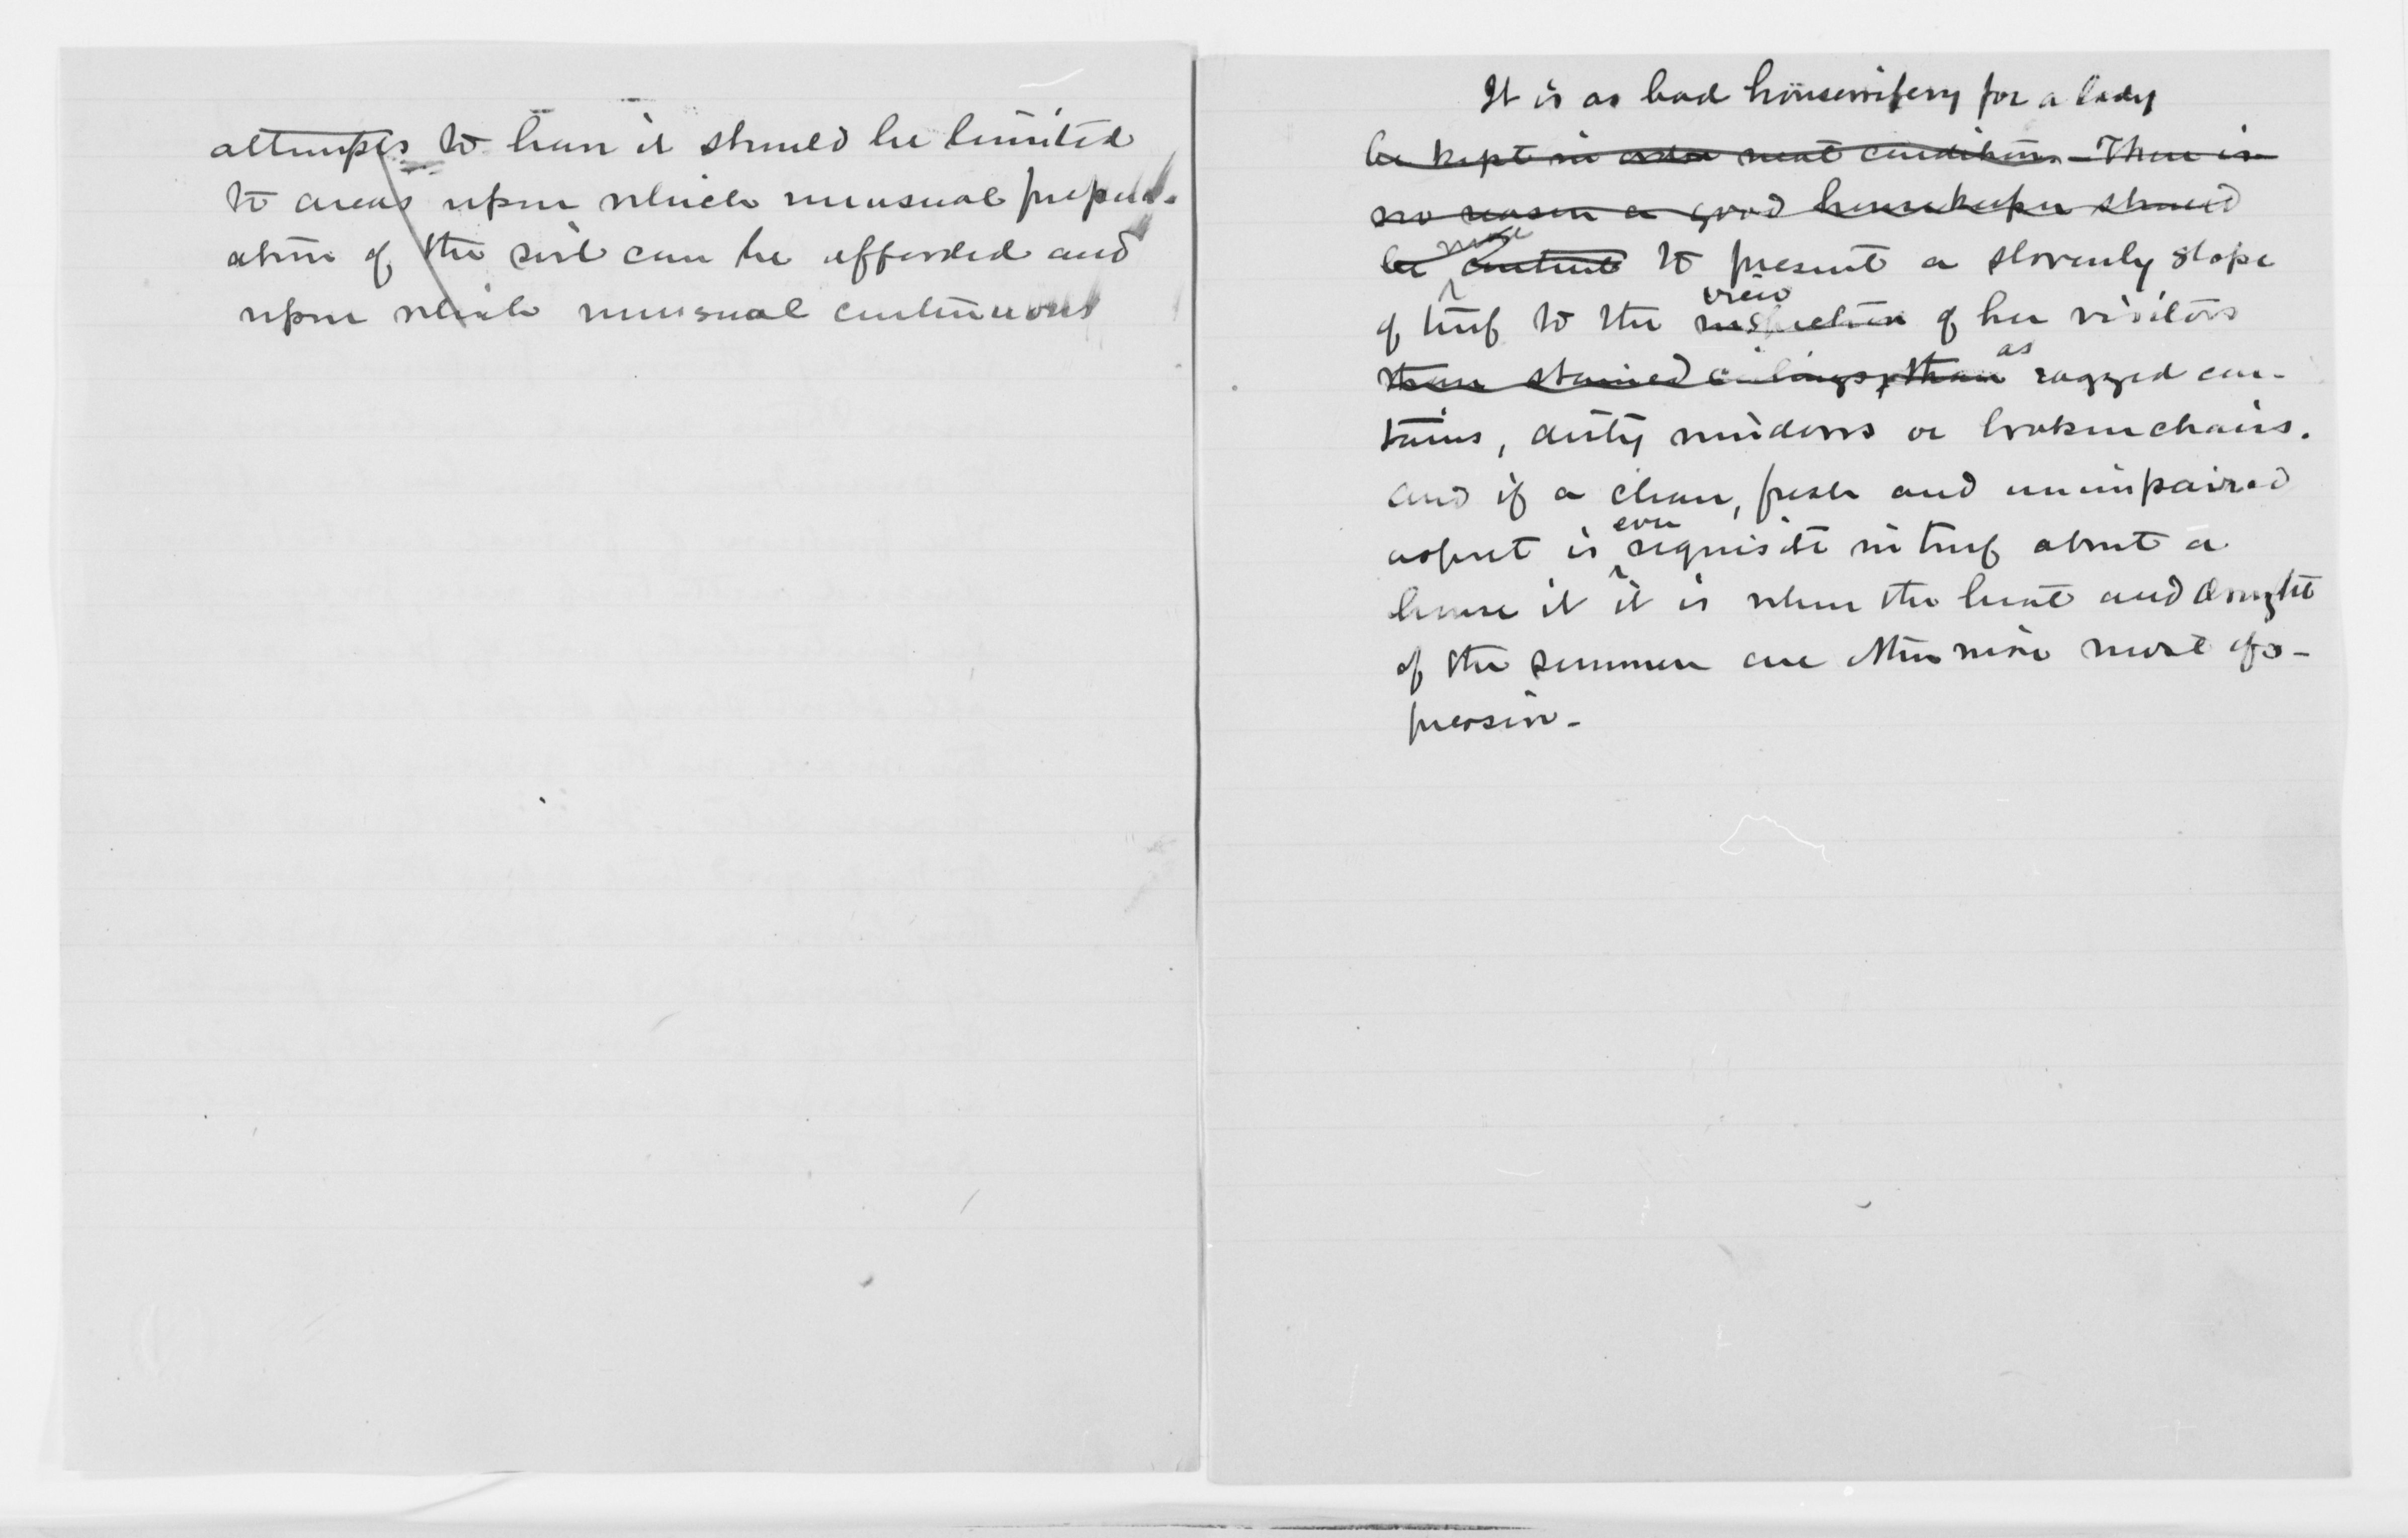 attempts to have it should be limited
to areas upon which unusual prepar-
ation of the soil can be afforded and
upon which unusual continuous
It is as bad housewifery for a lady
be kept in order neat condition - There is
no reason a good housekeeper should
more
be content to present a slovenly slope
view
of turf to the inspection of her visitors
as
than stained ceilings, than ragged cur-
tains, dirty windows or broken chairs.
and if a clean, fresh and unimpaired
ever
aspect is requisite in turf about a
house it it is when the heat and drought
of the summer are otherwise most op-
pressive -